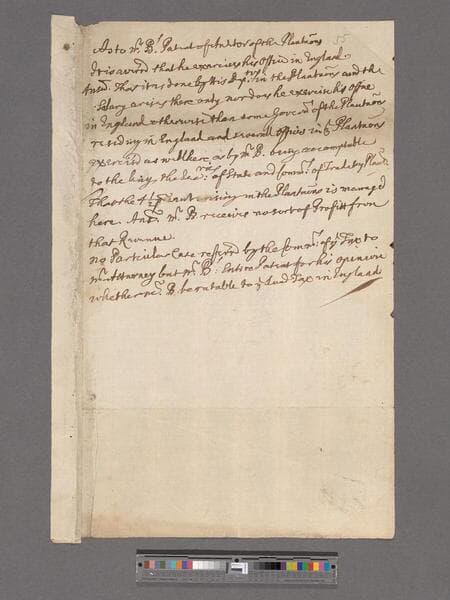 As to Mr. Bs. Patent of Auditor of the Plantacōns
It is averrd that he exercises his Office in England.
Answ. That it is done by his Dep.tys in the Plantacōns and the
Salary arises there only nor does he exercise his Office
in England otherwise than some Govern.rs of the Plantacōns
residing in England and severall Offices in ye Plantacōns
exercised as well here, as by Mr. B. being accomptable
to the King the Sec.rys of State and Comm.rs of Trade & Plant.
That the in the Plantacōns is managed
here. Answ. Mr. B. receives no sort of Profitt from
that Revenue.
No Particular Case referrd by the Comm.rs of ye Tax to
Mr. Attorney but Mr. Bs. Entire Patent for his opinion
whether Mr. B. be ratable to ye Land Tax in England